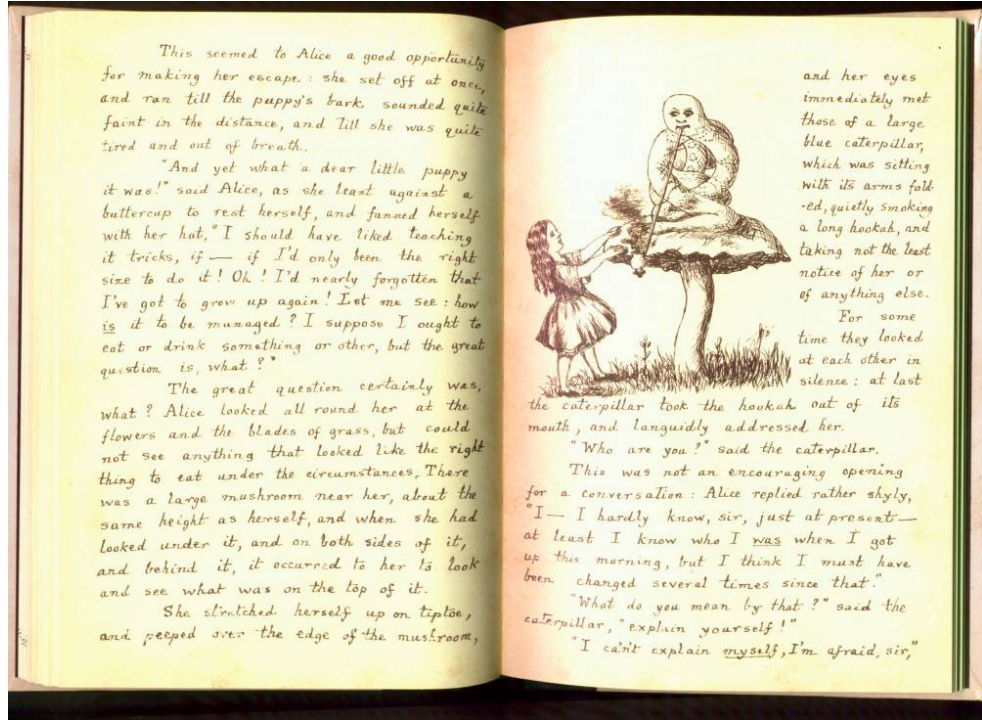 This seemed to Alice a good opportunity
for making her escape : she set off at once,
and ran till the puppy's bark sounded quite
faint in the distance, and till she was quite
tired and out of breath.
"And yet what a dear little puppy
it was!" said Alice, as she leant against a
buttercup to rest herself, and fanned herself
with her hat, "I should have liked teaching
it tricks, if — if I'd only been the right
size to do it! Oh! I'd nearly forgotten that
I've got to grow up again! Let me see : how
is it to be managed? I suppose I ought to
eat or drink something or other, but the great
question is, what?"
The great question certainly was,
what? Alice looked all round her at the
flowers and the blades of grass, but could
not see anything that looked like the right
thing to eat under the circumstances. There
was a large mushroom near her, about the
same height as herself, and when she had
looked under it, and on both sides of it,
and behind it, it occurred to her to look
and see what was on the top of it.
She stretched herself up on tiptoe,
and peeped over the edge of the mushroom,
and her eyes
immediately met
those of a large
blue caterpillar,
which was sitting
with its arms fold
-ed, quietly smoking
a long hookah, and
taking not the least
notice of her or
of anything else.
For some
time they looked
at each other in
silence : at last
the caterpillar took the hookah out of its
mouth, and languidly addressed her.
"Who are you?" said the caterpillar.
This was not an encouraging opening
for a conversation : Alice replied rather shyly,
"I — I hardly know, sir, just at present —
at least I know who I was when I got
up this morning, but I think I must have
been changed several times since that."
"What do you mean by that?" said the
caterpillar, "explain yourself!"
"I can't explain myself, I'm afraid, sir,"